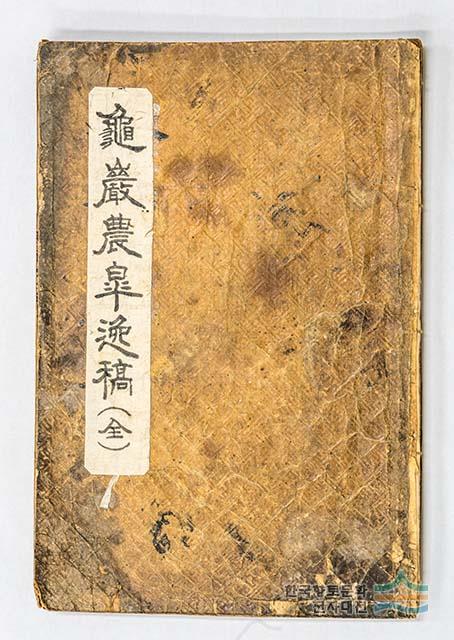 龜巖農皐逸稿(全)
한국향토문화
전자대전